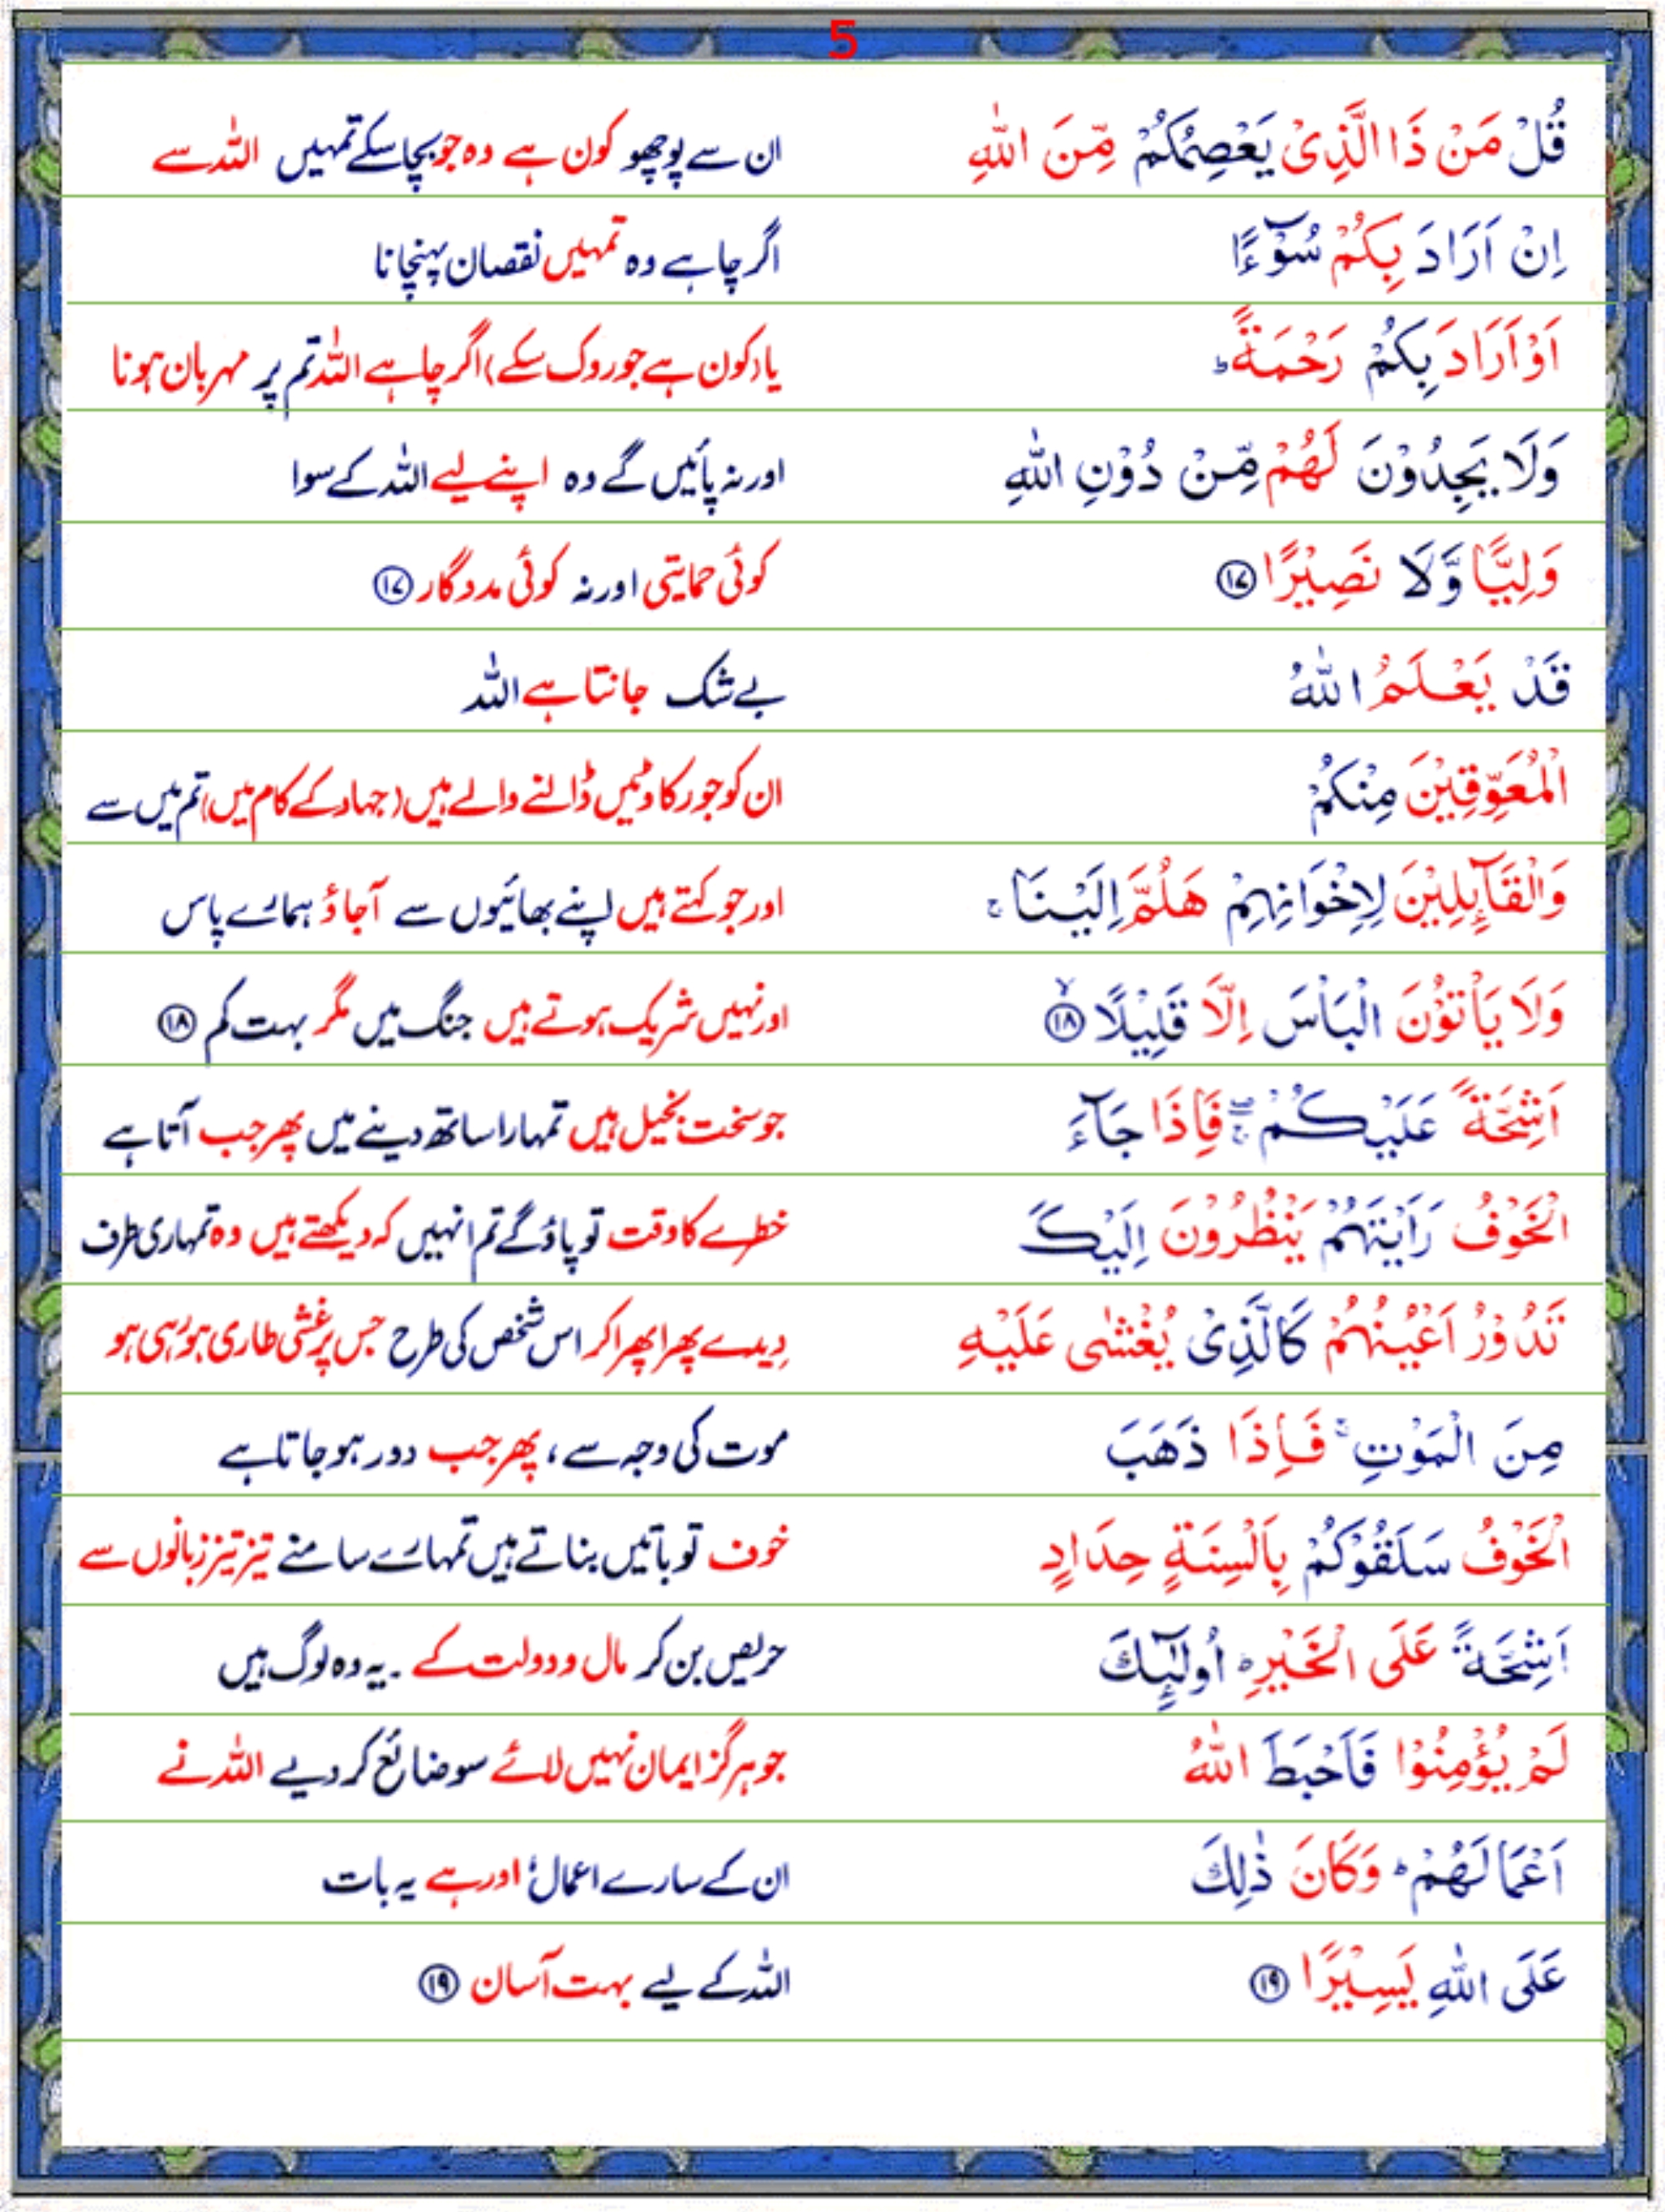 5
قُلْ مَنْ ذَا الَّذِیْ یَعْصِمُكُمْ مِّنَ اللّٰهِ ان سے پوچھو کون ہے وہ جو بچا سکے تمہیں اللہ سے
اِنْ اَرَادَ بِكُمْ سُوْٓءًا اگر چاہے وہ تمہیں نقصان پہنچانا
اَوْ اَرَادَ بِكُمْ رَحْمَةً ؕ یا (کون ہے جو روک سکے) اگر چاہے اللہ تم پر مہربان ہونا
وَلَا یَجِدُوْنَ لَهُمْ مِّنْ دُوْنِ اللّٰهِ اور نہ پائیں گے وہ اپنے لیے اللہ کے سوا
وَلِیًّا وَّلَا نَصِیْرًا ⑰ کوئی حمایتی اور نہ کوئی مددگار ⑰
قَدْ یَعْلَمُ اللّٰهُ بے شک جانتا ہے اللہ
الْمُعَوِّقِیْنَ مِنْكُمْ ان کو جو رکاوٹیں ڈالنے والے ہیں (جہاد کے کام میں) تم میں سے
وَالْقَآىِٕلِیْنَ لِاِخْوَانِهِمْ هَلُمَّ اِلَیْنَا ۚ اور جو کہتے ہیں اپنے بھائیوں سے آجاؤ ہمارے پاس
وَلَا یَاْتُوْنَ الْبَاْسَ اِلَّا قَلِیْلًا ۙ⑱ اور نہیں شریک ہوتے ہیں جنگ میں مگر بہت کم ⑱
اَشِحَّةً عَلَیْكُمْ ۖۚ فَاِذَا جَآءَ جو سخت بخیل ہیں تمہارا ساتھ دینے میں پھر جب آتا ہے
الْخَوْفُ رَاَیْتَهُمْ یَنْظُرُوْنَ اِلَیْكَ خطرے کا وقت تو پاؤ گے تم انہیں کہ دیکھتے ہیں وہ تمہاری طرف
تَدُوْرُ اَعْیُنُهُمْ كَالَّذِیْ یُغْشٰی عَلَیْهِ دیدے پھرا پھرا کر اس شخص کی طرح جس پر غشی طاری ہو رہی ہو
مِنَ الْمَوْتِ ۚ فَاِذَا ذَهَبَ موت کی وجہ سے، پھر جب دور ہو جاتا ہے
الْخَوْفُ سَلَقُوْكُمْ بِاَلْسِنَةٍ حِدَادٍ خوف تو باتیں بناتے ہیں تمہارے سامنے تیز تیز زبانوں سے
اَشِحَّةً عَلَی الْخَیْرِ ؕ اُولٰٓىِٕكَ حریص بن کر مال و دولت کے ۔ یہ وہ لوگ ہیں
لَمْ یُؤْمِنُوْا فَاَحْبَطَ اللّٰهُ جو ہرگز ایمان نہیں لائے سو ضائع کر دیے اللہ نے
اَعْمَالَهُمْ ؕ وَكَانَ ذٰلِكَ ان کے سارے اعمال اور ہے یہ بات
عَلَی اللّٰهِ یَسِیْرًا ⑲ اللہ کے لیے بہت آسان ⑲